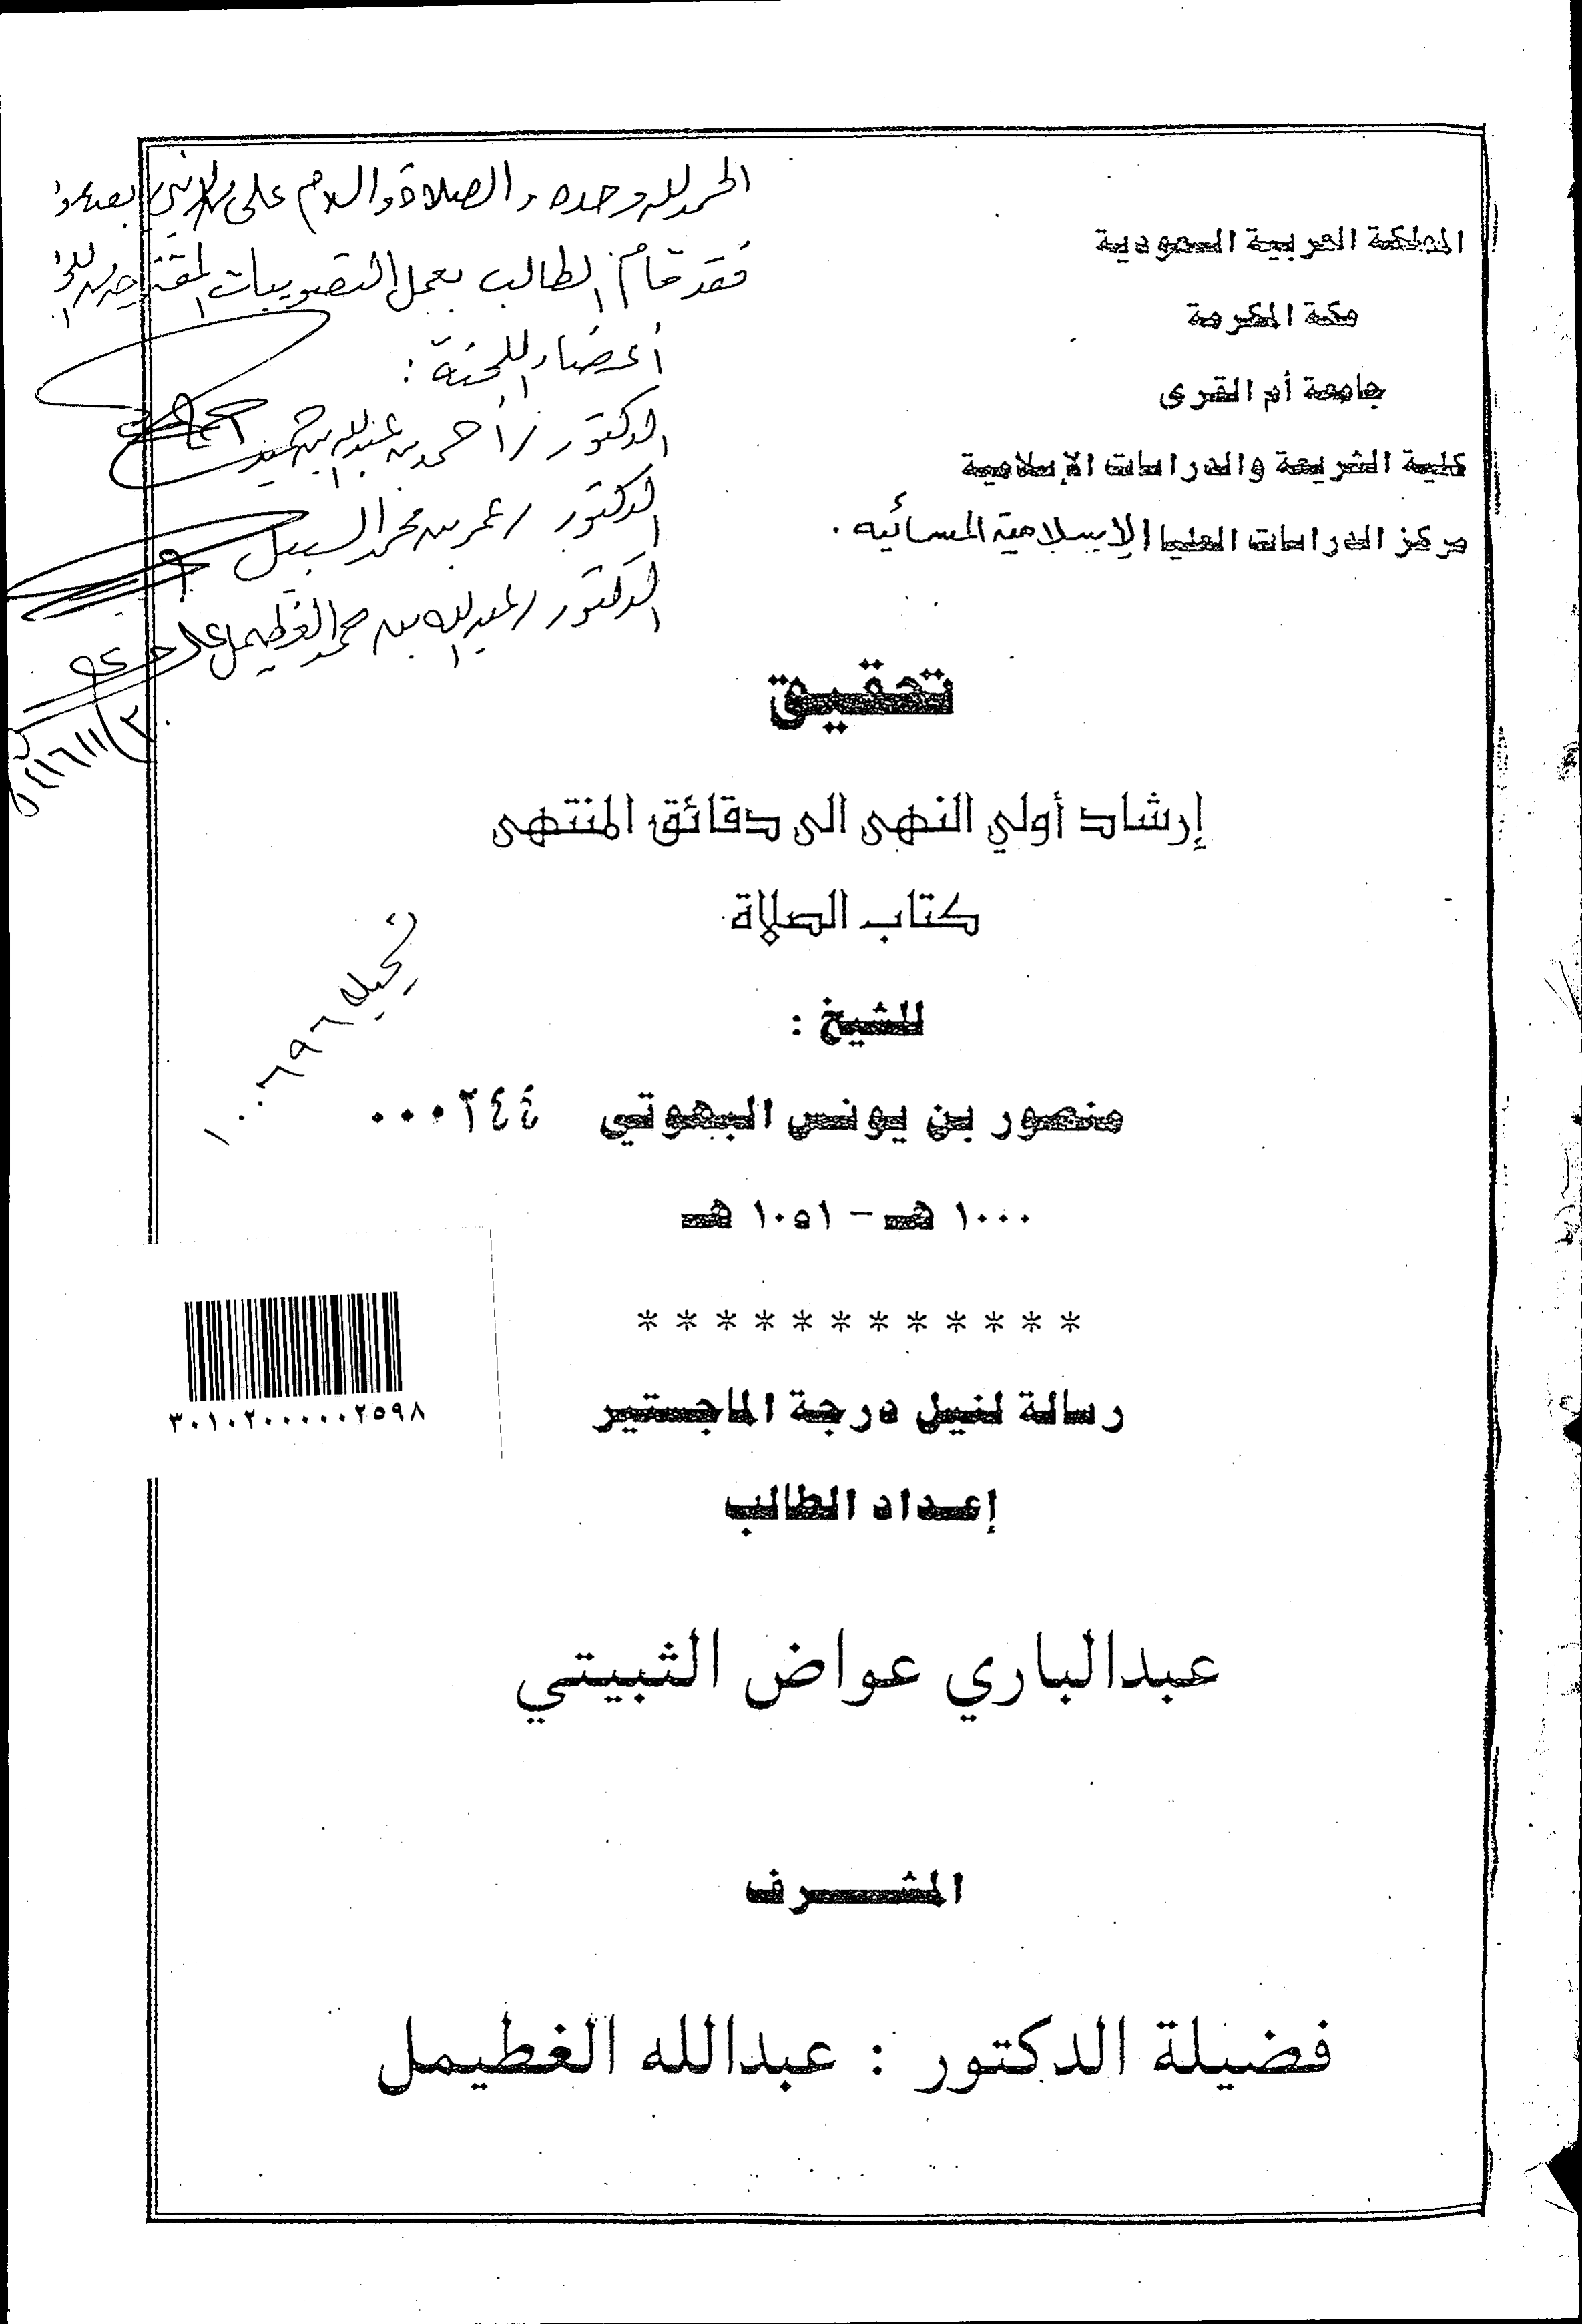 المملكة العربية السعودية
مكة المكرمة
جامعة أم القرى
كلية الشريعة والدراسات الإسلامية
مركز الدراسات العليا الإسلامية المسائيه .
الحمد لله وحده والصلاة والسلام على من لا نبي بعده
فقد قام الطالب بعمل التصويبات المقترحة من
أعضاء اللجنة :
الدكتور / أحمد بن عبدالله بن حميد
الدكتور / عمر بن محمد السبيل
الدكتور / عبدالله بن حمد الغطيمل
تحقيق
إرشاد أولي النهى الى دقائق المنتهى
كتاب الصلاة
للشيخ :
منصور بن يونس البهوتي ٠٠٠٢٤٤
١٠٠٠ هـ - ١٠٥١ هـ
١٠٠٦٩٦
* * * * * * * * * * * *
٣٠١٠٢٠٠٠٠٠٢٥٩٨
رسالة لنيل درجة الماجستير
إعداد الطالب
عبدالباري عواض الثبيتي
المشـــرف
فضيلة الدكتور : عبدالله الغطيمل